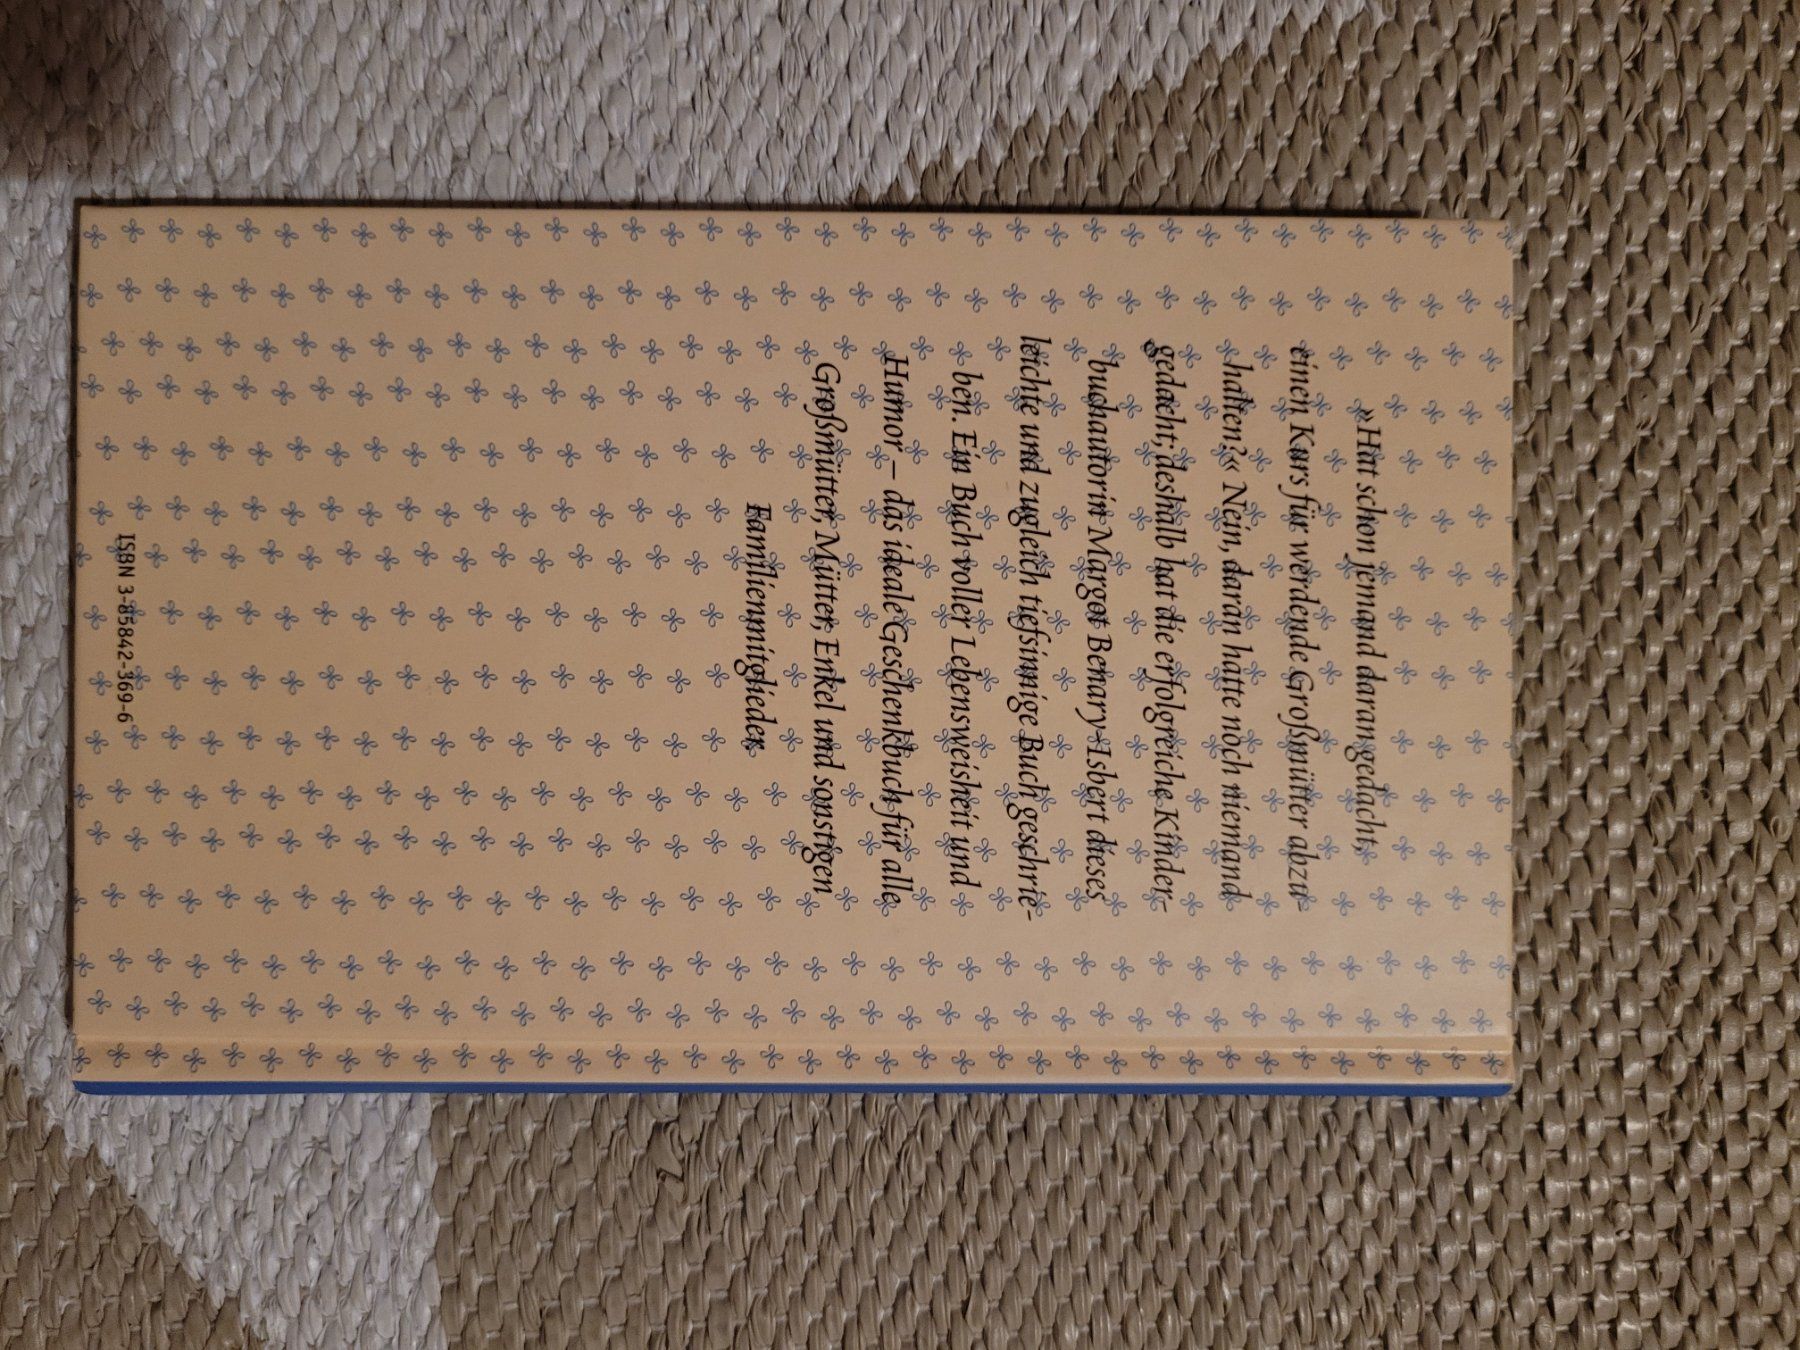 »Hat schon jemand daran gedacht,
einen Kurs für werdende Großmütter abzu-
halten?« Nein, daran hatte noch niemand
gedacht; deshalb hat die erfolgreiche Kinder-
buchautorin Margot Benary-Isbert dieses
leichte und zugleich tiefsinnige Buch geschrie-
ben. Ein Buch voller Lebensweisheit und
Humor – das ideale Geschenkbuch für alle
Großmütter, Mütter, Enkel und sonstigen
Familienmitglieder.
ISBN 3-85842-369-6